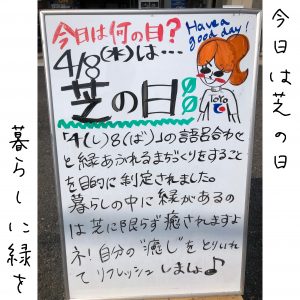 今日は芝の日
今日は何の日?
Have a
good day!
4/8(木)は…
芝の日
TOYO
「4(し)8(ば)」の語呂合わせ
と緑あふれるまちづくりをすること
を目的に制定されました。
暮らしの中に緑があるの
は芝に限らず癒されますよ
ネ!自分の"癒し"をとりいれ
てリフレッシュしましょ♪
暮らしに緑を